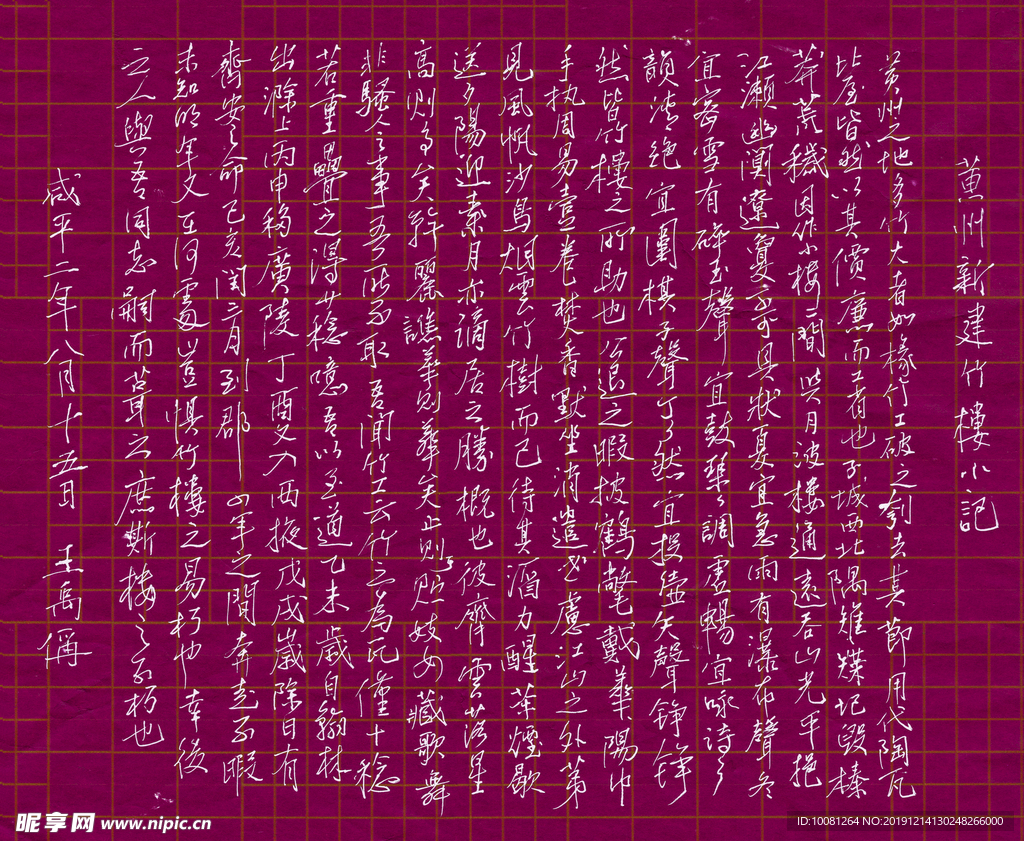 黄州新建竹樓小記
黄州之地多竹大者如椽竹工破之刳去其節用代陶瓦
比屋皆然以其價廉而工省也子城西北隅雉堞圮毀榛
莽荒穢因作小樓二間與月波樓通遠吞山光平挹
江瀨幽闃遼夐不可具狀夏宜急雨有瀑布聲冬
宜密雪有碎玉聲宜鼓琴琴調虛暢宜咏詩詩
韻清絕宜圍棋子聲丁丁然宜投壺矢聲錚錚
然皆竹樓之所助也公退之暇披鶴氅戴華陽巾
手執周易壹卷焚香默坐消遣世慮江山之外第
見風帆沙鳥烟雲竹樹而已待其酒力醒茶煙歇
送夕陽迎素月亦謫居之勝概也彼齊雲落星
高則高矣井幹麗譙華則華矣止則貯妓女藏歌舞
非騷人之事吾所不取吾聞竹工云竹之為瓦僅十稔
若重疊之得廿稔噫吾以至道乙未歲自翰林
出滁上丙申移廣陵丁酉又入西掖戊戌歲除日有
齊安之命己亥閏三月到郡四年之間奔走不暇
未知明年又在何處豈懼竹樓之易朽也幸後
之人與吾同志嗣而葺之庶斯樓之不朽也
咸平二年八月十五日 王禹偁
昵享网 www.nipic.cn
ID:10081264 NO:20191214130248266000